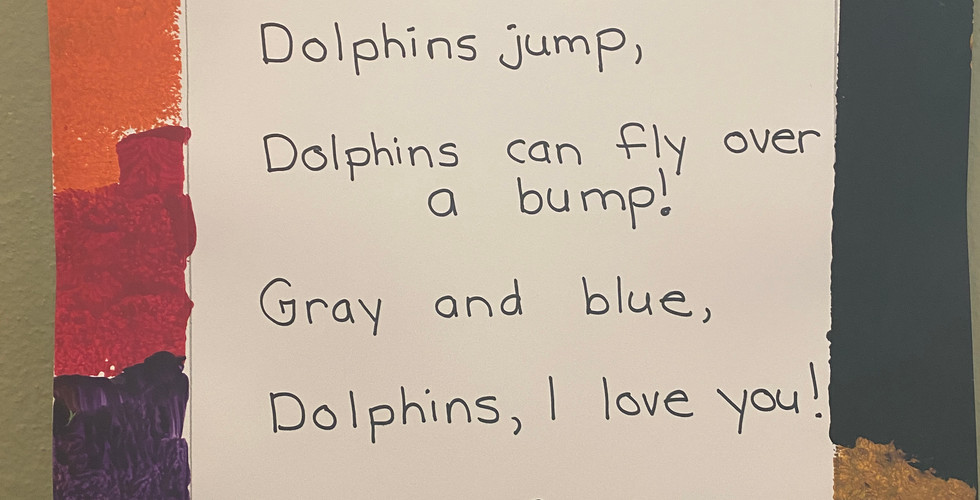 Dolphins jump,
Dolphins can fly over
a bump!
Gray and blue,
Dolphins, I love you!